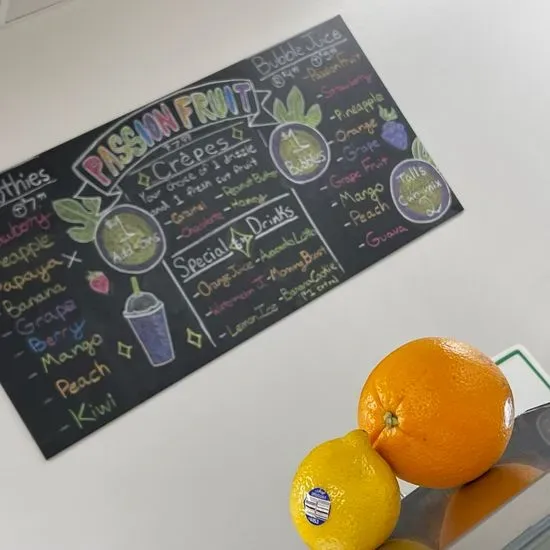 PASSION FRUIT
Crêpes
Your choice of 1 drizzle
and 1 fresh cut fruit
- Caramel
- Peanut Butter
- Chocolate
- Honey
Special Drinks
- Orange Juice
- Avocado Latte
- Watermelon J.
- Morning Boost
- Lemon Ice
- Banana Cookie
$1
Add Ons
Papaya X
- Banana
- Grape
- Berry
- Mango
- Peach
- Kiwi
Bubble Juice
- Passion Fruit
- Strawberry
- Pineapple
- Orange
- Grape
- Grape Fruit
- Mango
- Peach
- Guava
$1
Bubbles
Talls
Can mix